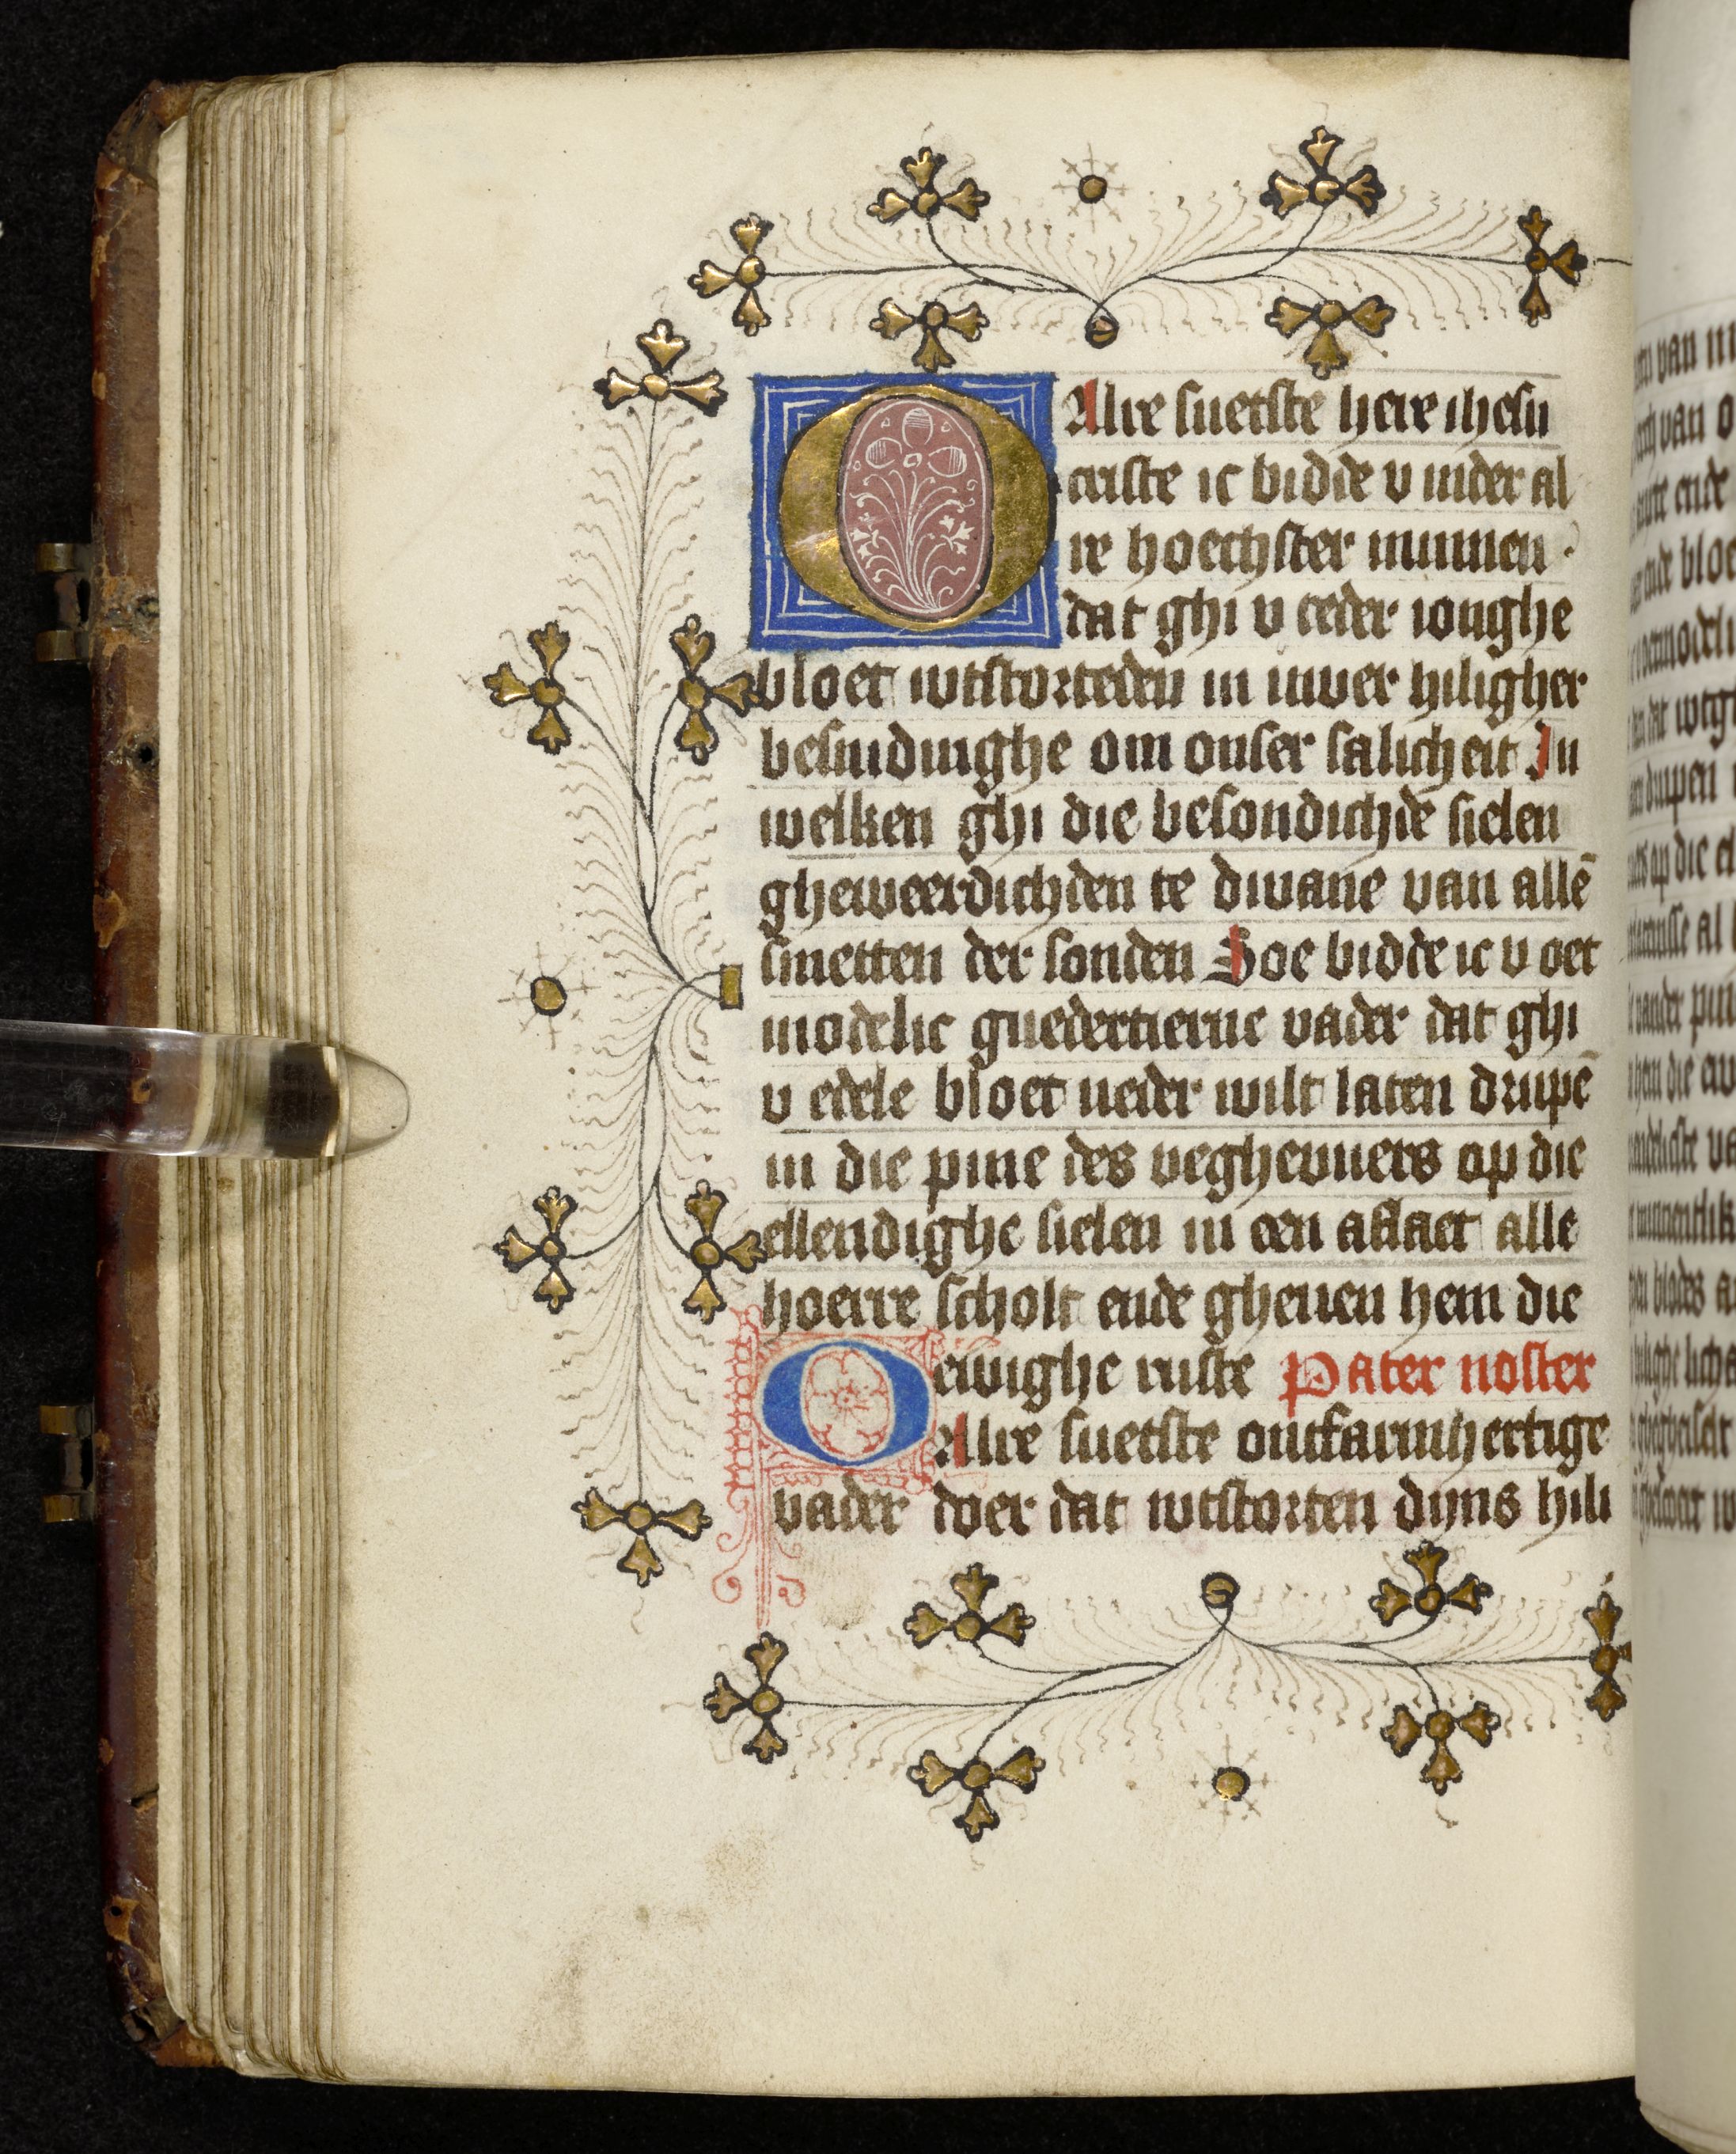 O Alre suetste here ihesu
criste ic bidde v inder al
re hoechster minnen·
dat ghi v teder ionghe
bloet wtstorteden in uwer hiligher
besnidinghe om onser salicheit In
welken ghi die besondichde sielen
gheweerdichden te dwane van allē
smetten der sonden Soe bidde ic v oet
modelic guedertierne vader dat ghi
v edele bloet neder wilt laten drupē
in die pine des veghevuers op die
ellendighe sielen in een aflaet alle
hoerre scholt ende gheuen hem die
ewighe ruste Pater noster
O Alre suetste ontfarmhertige
vader doer dat wtstorten dijns hili